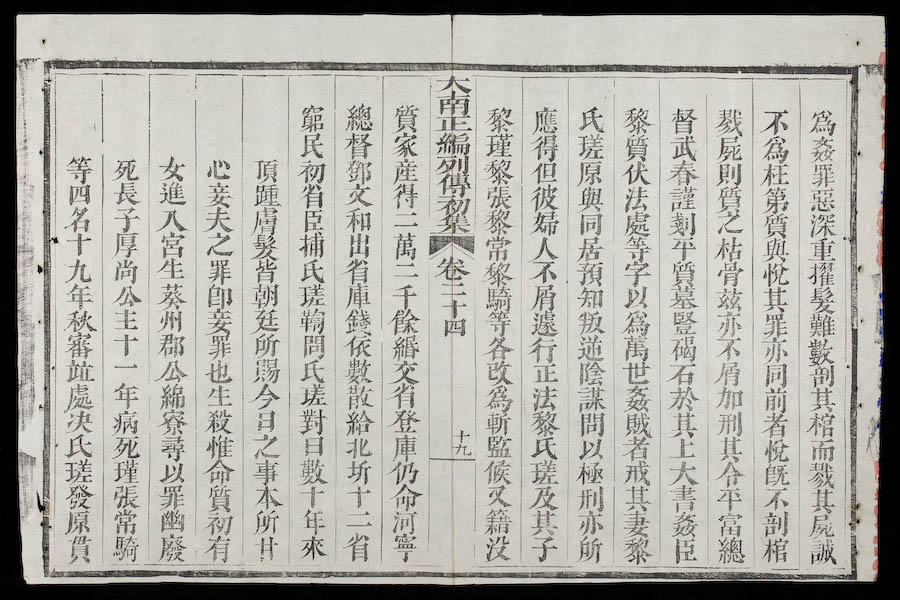 為姦罪惡深重擢髮難數剖其棺而戮其屍誠
不為枉第質與悅其罪亦同前者悅旣不剖棺
戮屍則質之枯骨兹亦不屑加刑其令平富總
督武春謹剗平質墓豎碣石於其上大書姦臣
黎質伏法處等字以為萬世姦賊者戒其妻黎
氏瑳原與同居預知叛逆陰謀問以極刑亦所
應得但彼婦人不屑遽行正法黎氏瑳及其子
黎瑾黎張黎常黎騎等各改為斬監候又籍没
大南正編列傳初集 卷二十四 十九
質家産得二萬二千餘緡交省登庫仍命河寧
總督鄧文和出省庫錢依數散給北圻十二省
窮民初省臣捕氏瑳鞫問氏瑳對曰數十年來
頂踵膚髮皆朝廷所賜今日之事本所甘
心妾夫之罪卽妾罪也生殺惟命質初有
女進入宮生葵州郡公綿寮尋以罪幽廢
死長子厚尚公主十一年病死瑾張常騎
等四名十九年秋審竝處决氏瑳發原貫